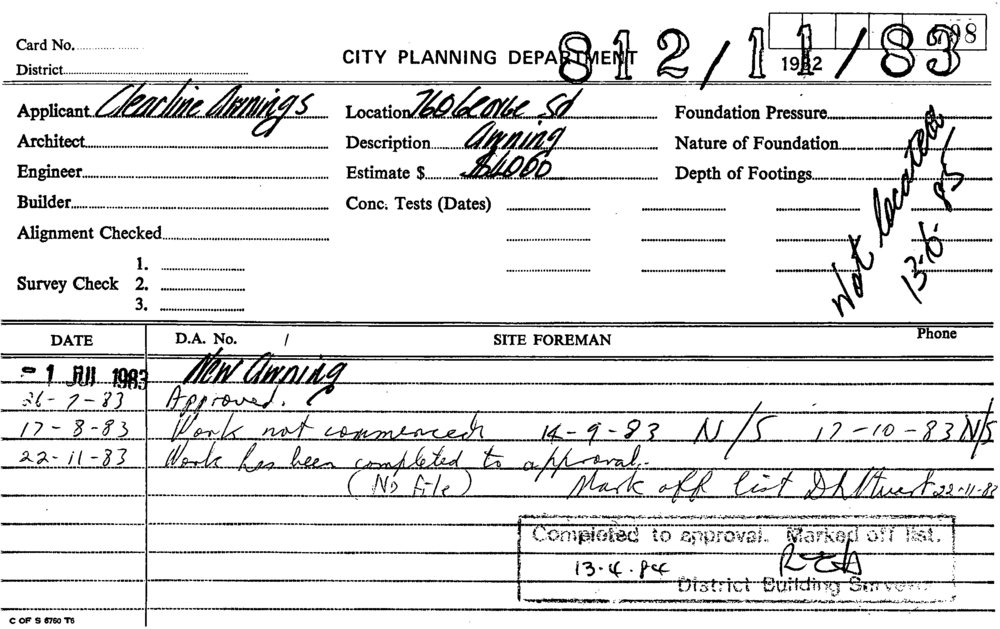 Card No.
CITY PLANNING DEPARTMENT 1982
812/11/83
District
Applicant Clearline Awnings Location 760 George St Foundation Pressure
Architect Description Awning Nature of Foundation
Engineer Estimate $ $4000 Depth of Footings
Builder Conc. Tests (Dates)
Not located
13.6.85
Alignment Checked
1.
Survey Check 2.
3.
DATE D.A. No. / SITE FOREMAN Phone
-1 JUL 1983 New Awning
26-7-83 Approved.
17-8-83 Work not commenced 14-9-83 N/S 17-10-83 N/S
22-11-83 Work has been completed to approval.
(No File) Mark off list 22-11-83
Completed to approval. Marked off list.
13.4.84
District Building Surveyor
C OF S 6760 T6